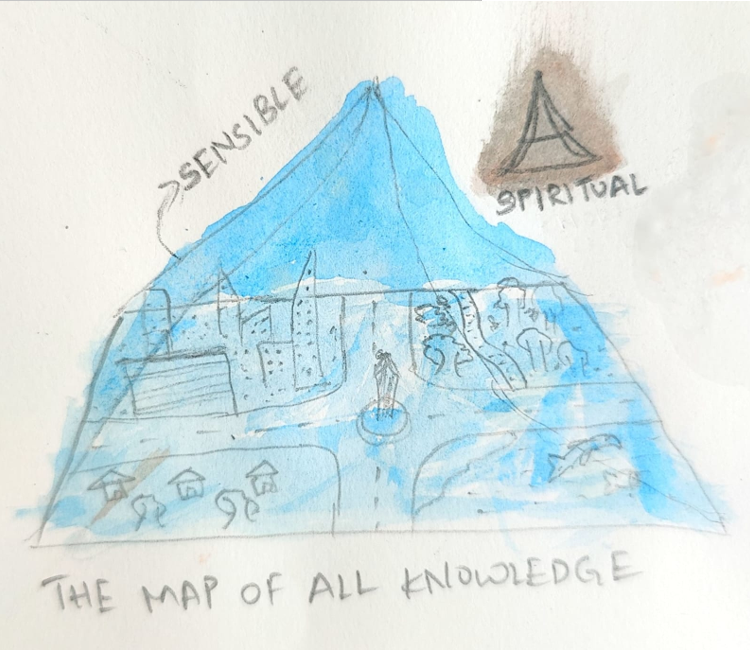 SENSIBLE
SPIRITUAL
THE MAP OF ALL KNOWLEDGE